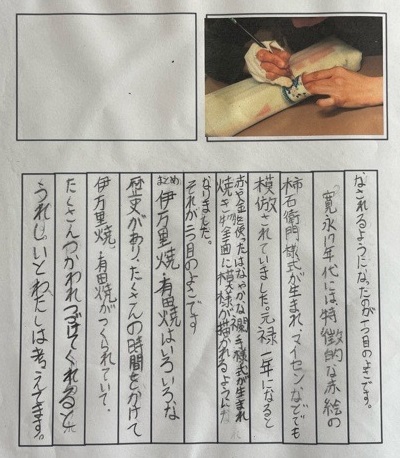 なされるようになったのが一つ目のよさです。
寛永17年代には、特徴的な赤絵の
柿右衛門様式が生まれ、マイセンなどでも
模倣されていました。元禄一年になると
赤や金を使ったはなやかな襴手様式が生まれ
焼き物全面に模様が描かれるように
なりました。
それが二つ目のよさです
まとめ 伊万里焼・有田焼はいろいろな
歴史があり、たくさんの時間をかけて
伊万里焼、有田焼がつくられていて、
たくさんつかわれつづけてくれると
うれしいとわたしは考えてます。